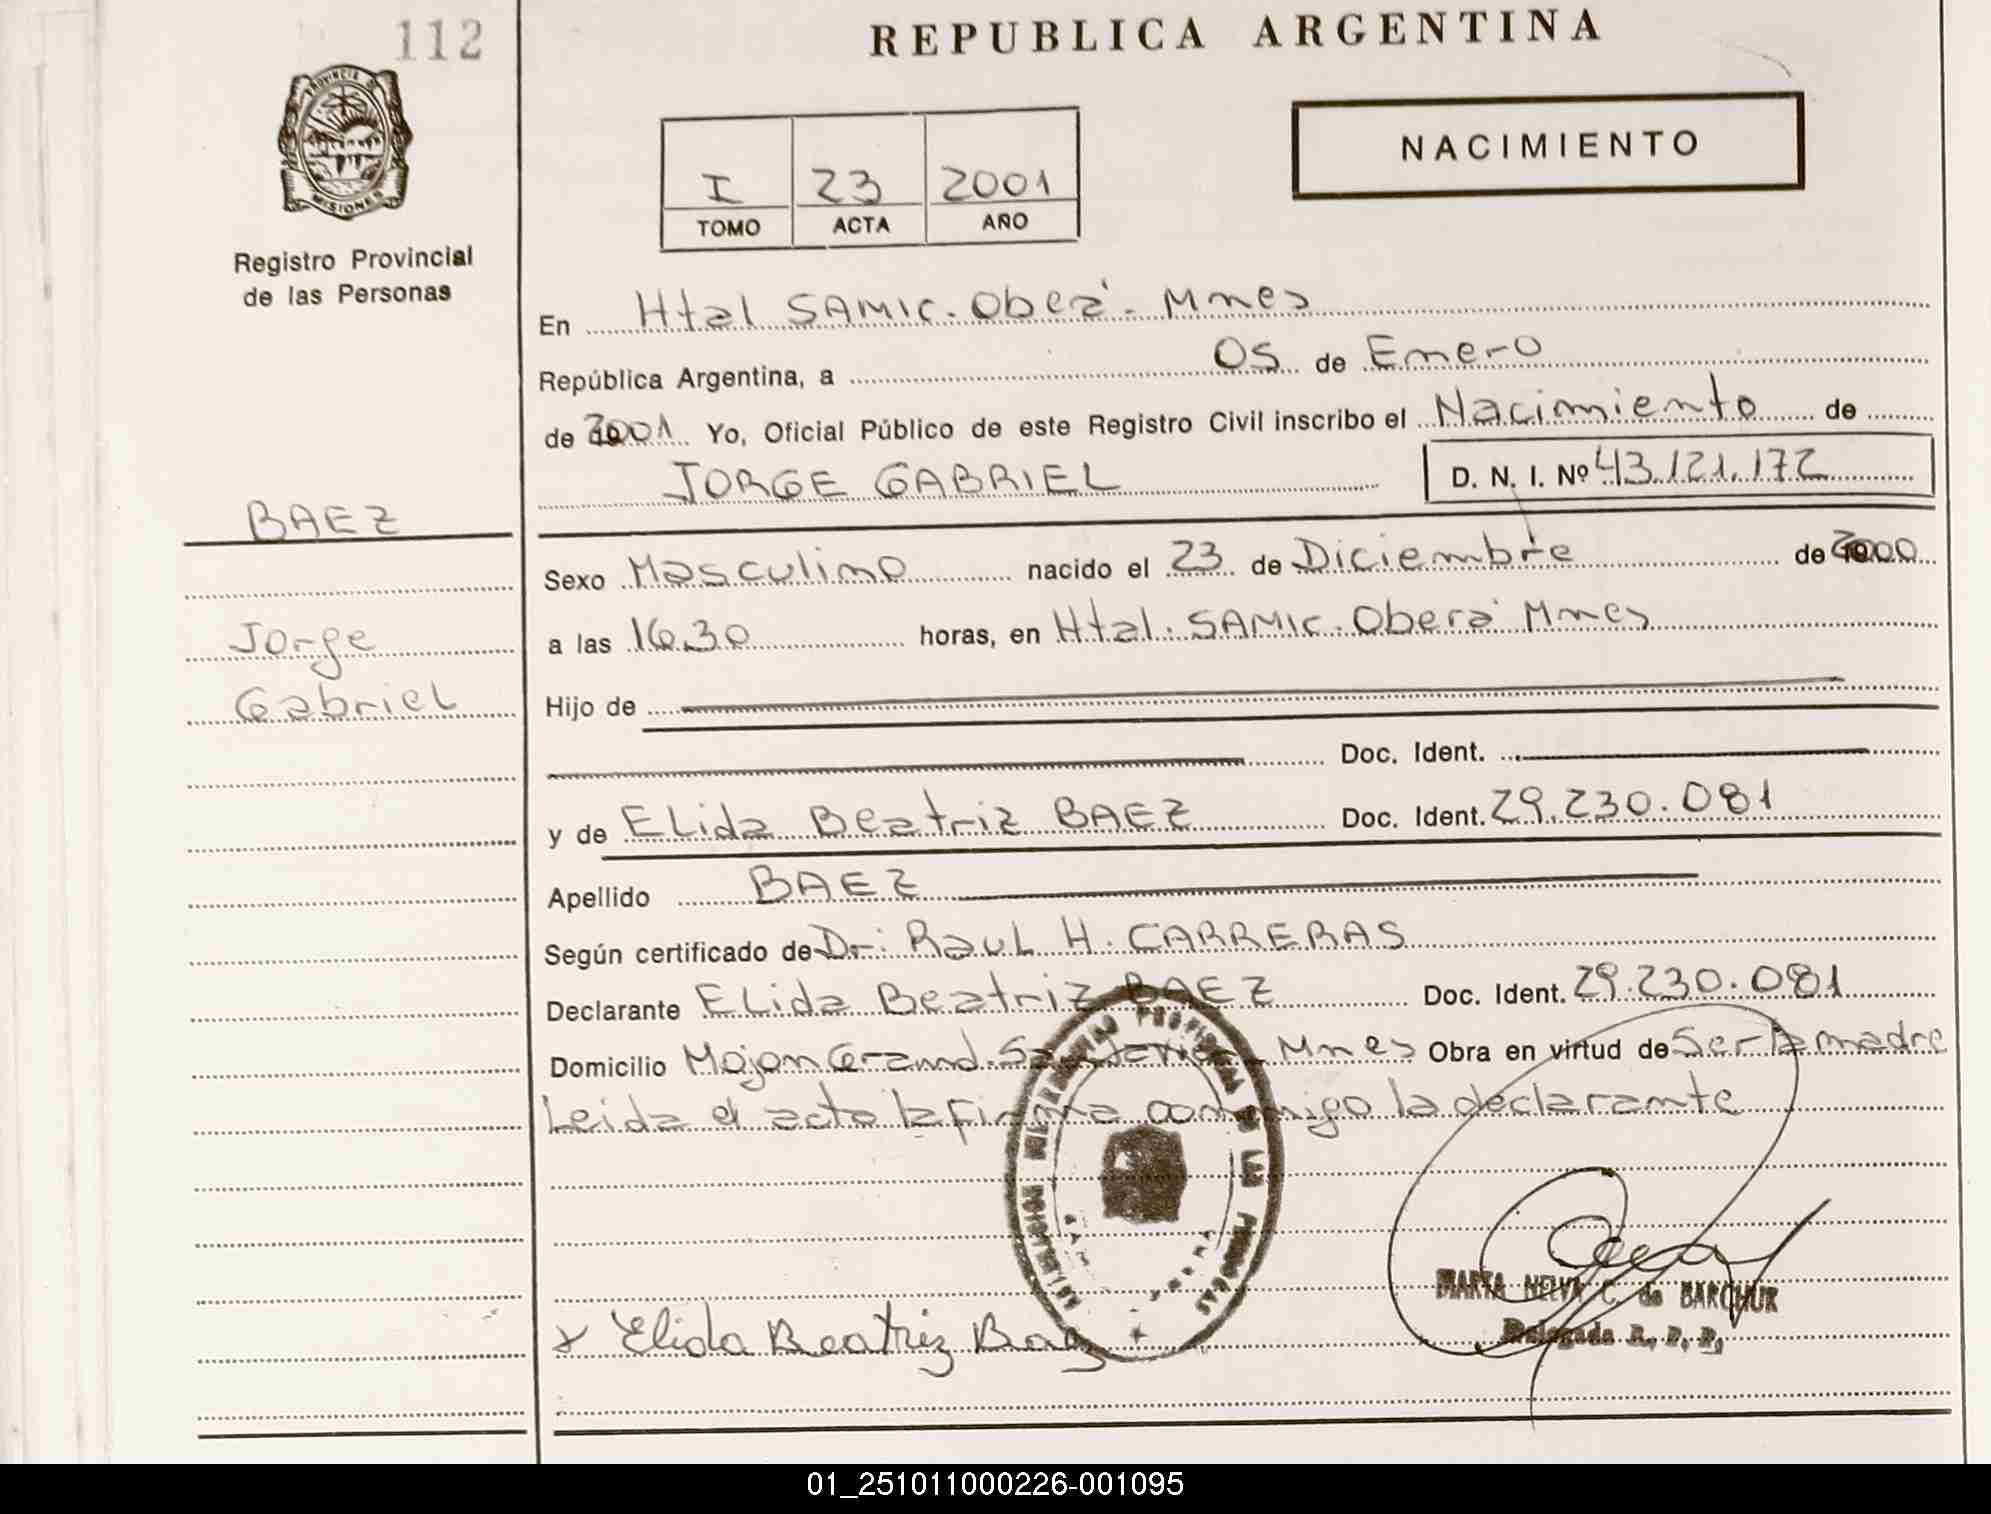 112
REPUBLICA ARGENTINA
PROVINCIA D
MISIONES
Registro Provincial
de las Personas
NACIMIENTO
I 23 2001
TOMO ACTA AÑO
En Htal SAMIC. Oberá. Mnes
República Argentina, a 05 de Enero
de 2001 Yo, Oficial Público de este Registro Civil inscribo el Nacimiento de
JORGE GABRIEL D. N. I. Nº 43.121.172
BAEZ
Jorge
Gabriel
Sexo Masculino nacido el 23 de Diciembre de 2000
a las 16.30 horas, en Htal. SAMIC. Oberá Mnes
Hijo de
Doc. Ident.
y de ELida Beatriz BAEZ Doc. Ident. 29.230.081
Apellido BAEZ
Según certificado de Dr. RauL H. CARRERAS
Declarante ELida Beatriz BAEZ Doc. Ident. 29.230.081
Domicilio Mojon Grand. San Javier Mnes Obra en virtud de Ser la madre
Leida el acta la firma conmigo la declarante
PROVINCIAL DE LAS PERSONAS
x Elida Beatriz Baez
MARTA NELVA C. de BARCHUK
Delegada R. P. P.
01_251011000226-001095